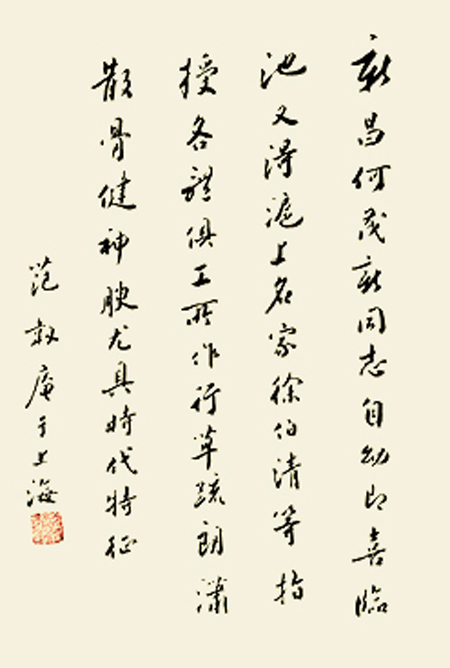 新昌何茂新同志自幼即喜臨
池又得滬上名家徐伯清等指
授各體俱工所作行草疏朗瀟
散骨健神腴尤具時代特征
范庵于上海